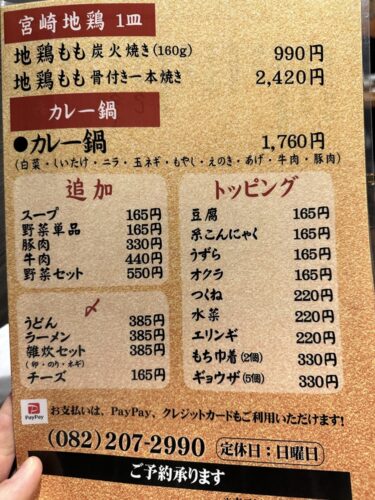 宮崎地鶏 1皿
地鶏もも炭火焼き(160g) 990円
地鶏もも骨付き一本焼き 2,420円
カレー鍋
●カレー鍋 1,760円
(白菜・しいたけ・ニラ・玉ネギ・もやし・えのき・あげ・牛肉・豚肉)
追加
スープ 165円
野菜単品 165円
豚肉 330円
牛肉 440円
野菜セット 550円
〆
うどん 385円
ラーメン 385円
雑炊セット 385円
(卵・のり・ネギ)
チーズ 165円
トッピング
豆腐 165円
糸こんにゃく 165円
うずら 165円
オクラ 165円
つくね 220円
水菜 220円
エリンギ 220円
もち巾着(2個) 330円
ギョウザ(5個) 330円
PayPay お支払いは、PayPay、クレジットカードもご利用いただけます!
(082)207-2990 定休日:日曜日
ご予約承ります